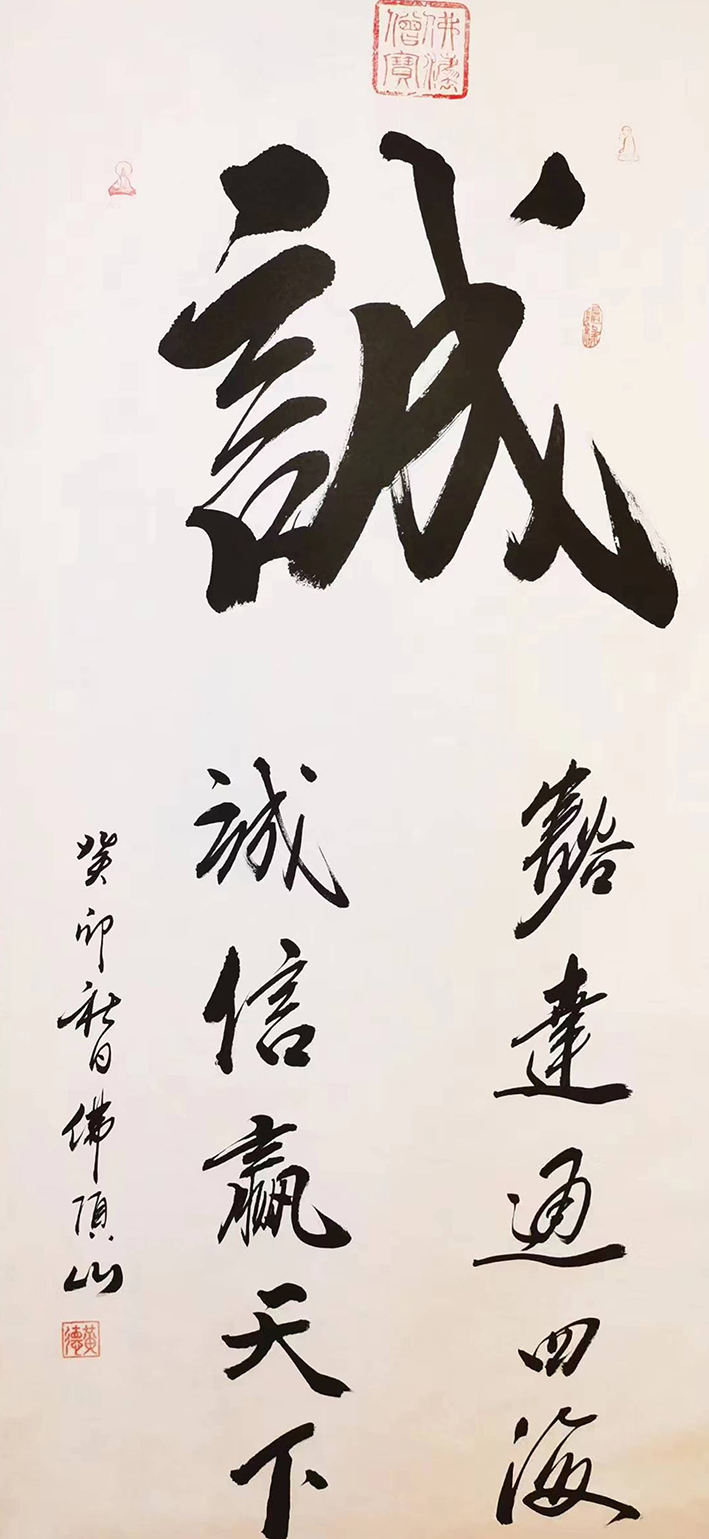 佛法僧寶
誠
豁達通四海
誠信贏天下
癸卯秋日佛頂山
黃德